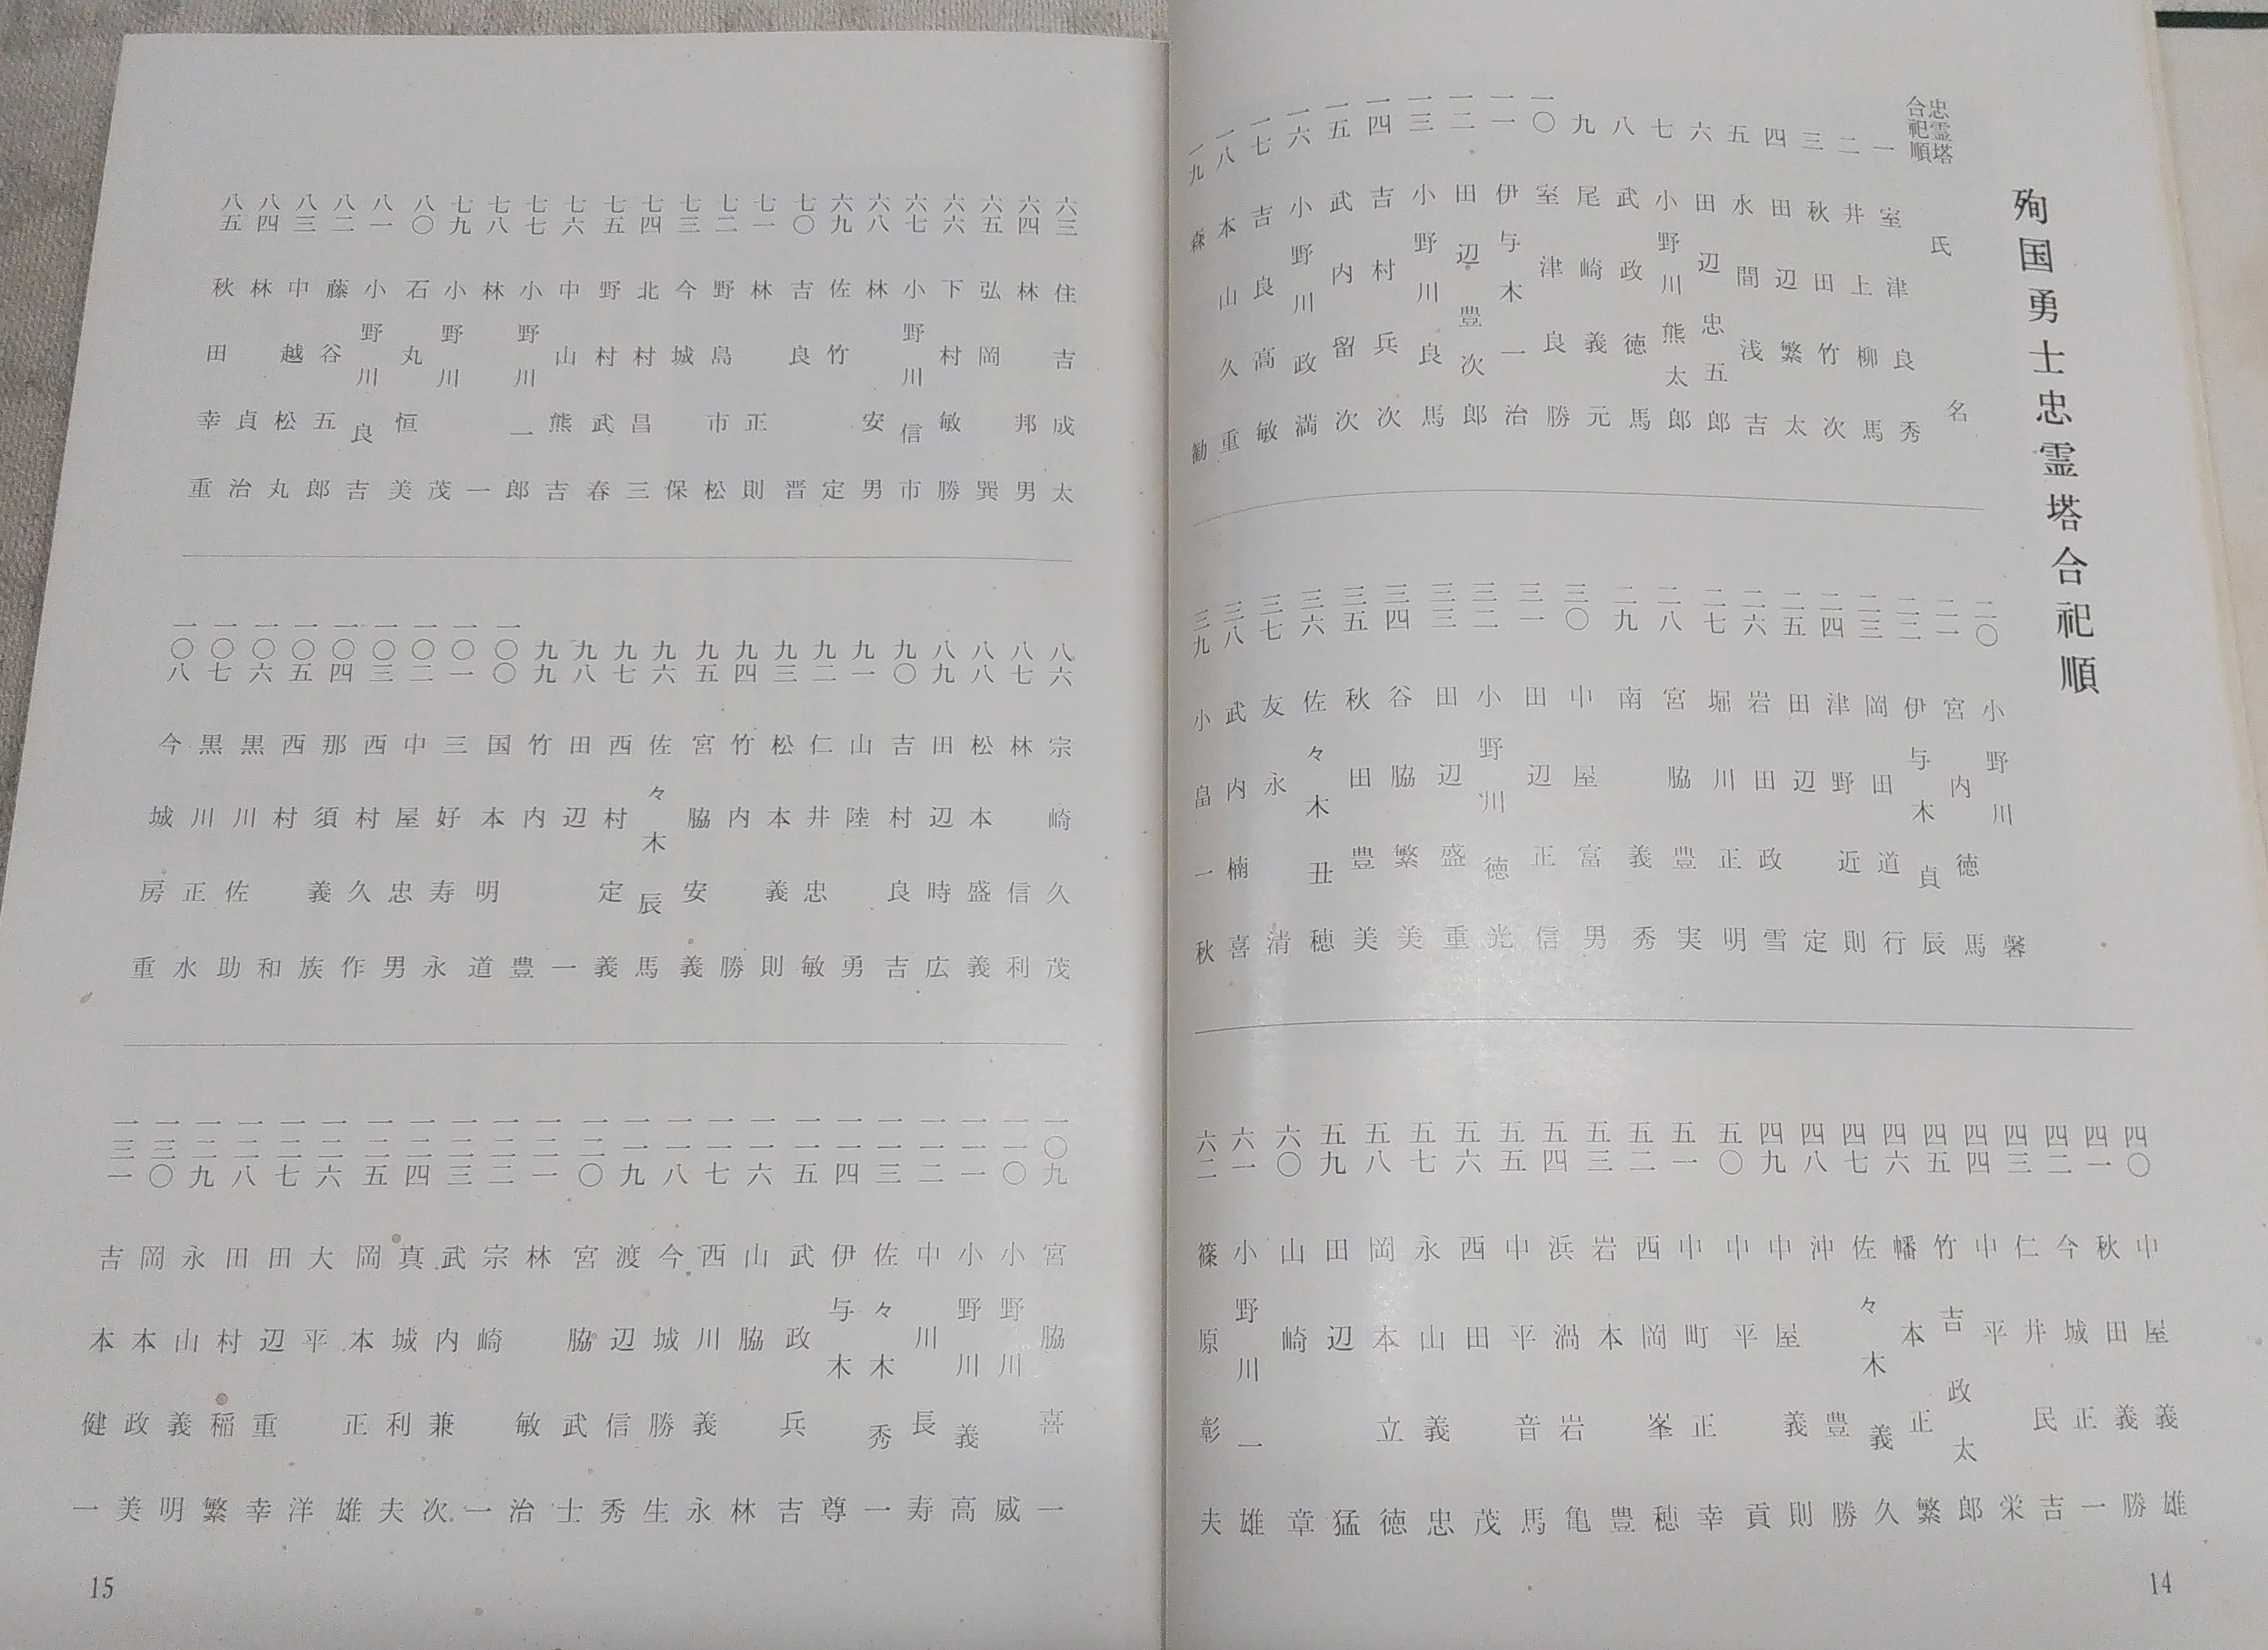 殉国勇士忠霊塔合祀順
忠霊塔合祀順 氏名
一 室津良秀
二 井上柳馬
三 秋田竹次
四 田辺繁太
五 水間浅吉
六 田辺忠五郎
七 小野川熊太郎
八 武政徳馬
九 尾崎義元
一〇 室津良勝
一一 伊与木一治
一二 田辺豊次郎
一三 小野川良馬
一四 吉村兵次
一五 武内留次
一六 小野川政満
一七 吉良高敏
一八 本山久重
一九 森勧
二〇 小野川馨
二一 宮内徳馬
二二 伊与木貞辰
二三 岡田道行
二四 津野近則
二五 田辺定
二六 岩田政雪
二七 堀川正明
二八 宮脇豊実
二九 南義秀
三〇 中屋富男
三一 田辺正信
三二 小野川徳光
三三 田辺盛重
三四 谷脇繁美
三五 秋田豊美
三六 佐々木丑穂
三七 友永清
三八 武内楠喜
三九 小畠一秋
四〇 中屋義雄
四一 秋田義勝
四二 今城正一
四三 仁井民吉
四四 中平栄
四五 竹吉政太郎
四六 幡本正繁
四七 佐々木義久
四八 沖豊勝
四九 中屋義則
五〇 中平貢
五一 中町正幸
五二 西岡峯穂
五三 岩本豊
五四 浜渦岩亀
五五 中平音馬
五六 西田茂
五七 永山義忠
五八 岡本立徳
五九 田辺猛
六〇 山崎章
六一 小野川一雄
六二 篠原彰夫
14
六三 住吉成太
六四 林邦男
六五 弘岡巽
六六 下村敏勝
六七 小野川信市
六八 林安男
六九 佐竹定
七〇 吉良晋
七一 林正則
七二 野島市松
七三 今城保
七四 北村昌三
七五 野村武春
七六 中山熊吉
七七 小野川一郎
七八 林一
七九 小野川茂
八〇 石丸恒美
八一 小野川良吉
八二 藤谷五郎
八三 中越松丸
八四 林貞治
八五 秋田幸重
八六 宗崎久茂
八七 林信利
八八 松本盛義
八九 田辺時広
九〇 吉村良吉
九一 山陸勇
九二 仁井忠敏
九三 松本義則
九四 竹内勝
九五 宮脇安義
九六 佐々木辰馬
九七 西村定義
九八 田辺一
九九 竹内豊
一〇〇 国本明道
一〇一 三好寿永
一〇二 中屋忠男
一〇三 西村久作
一〇四 那須義族
一〇五 西村和
一〇六 黒川佐助
一〇七 黒川正水
一〇八 今城房重
一〇九 宮脇喜一
一一〇 小野川威
一一一 小野川義高
一一二 中川長寿
一一三 佐々木秀一
一一四 伊与木尊
一一五 武政兵吉
一一六 山脇林
一一七 西川義永
一一八 今城勝生
一一九 渡辺信秀
一二〇 宮脇武士
一二一 林敏治
一二二 宗崎一
一二三 武内兼次
一二四 真城利夫
一二五 岡本正雄
一二六 大平洋
一二七 田辺重幸
一二八 田村稲繁
一二九 永山義明
一三〇 岡本政美
一三一 吉本健一
15